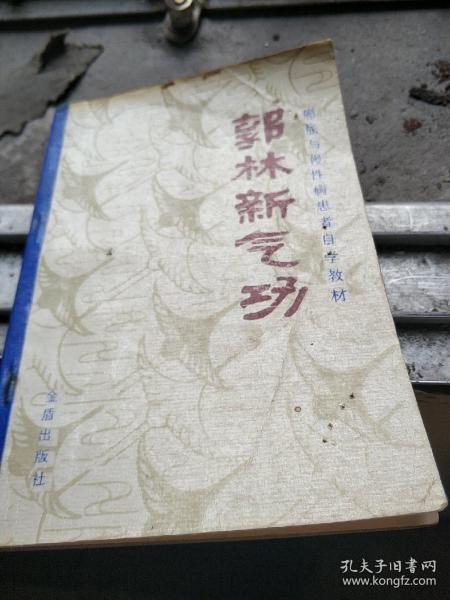 癌症与慢性病患者自学教材
郭林新气功
金盾出版社
孔夫子旧书网
www.kongfz.com